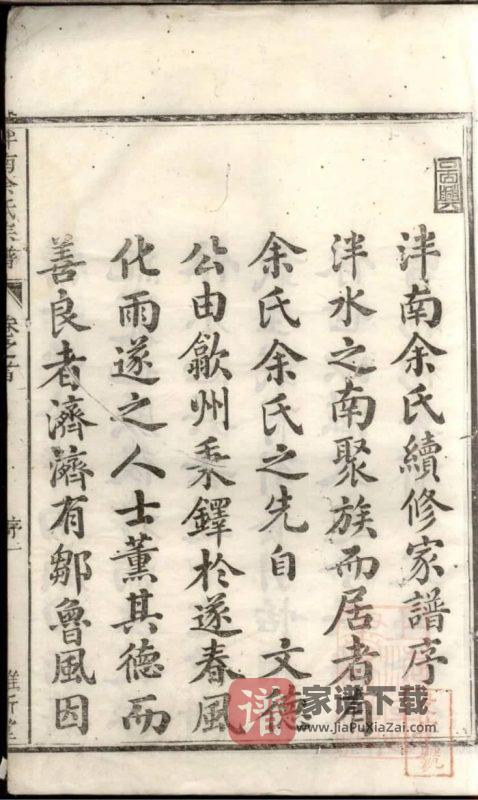 泮南余氏續修家譜序
泮水之南聚族而居者有
余氏余氏之先自 文德
公由歙州秉鐸於遂春風
化雨遂之人士薰其德而
善良者濟濟有鄒魯風因
卷之首
序一
譜
家谱下载
www.JiaPuXiaZai.com